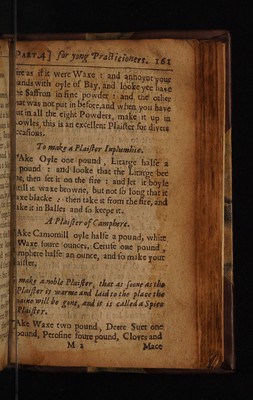 PART.4] for yong Practicioners. 161
as if it were Waxe : and annoynt your
ands with oyle of Bay, and looke yee have
Saffron in fine powder : and the other
at was not put in before, and when you have
ut in all the eight Powders, make it up in
owles, this is an excellent Plaister for divers
ccasions.
To make a Plaister Inplumbis.
Ake Oyle one pound, Litarge halfe a
pound : and looke that the Litarge bee
ne, then set it on the fire : and let it boyle
till it waxe browne, but not so long that it
axe blacke : then take it from the fire, and
ake it in Balles and so keepe it.
A Plaister of Camphere.
Ake Camomill oyle halfe a pound, white
Waxe foure ounces, Ceruse one pound,
amphere halfe an ounce, and so make your
laister.
make a noble Plaister, that as soone as the
Plaister is warme and laid to the place the
paine will be gone, and it is called a Spice
Plaister.
Ake Waxe two pound, Deere Suet one
pound, Perosine foure pound, Cloves and
M 2 Mace